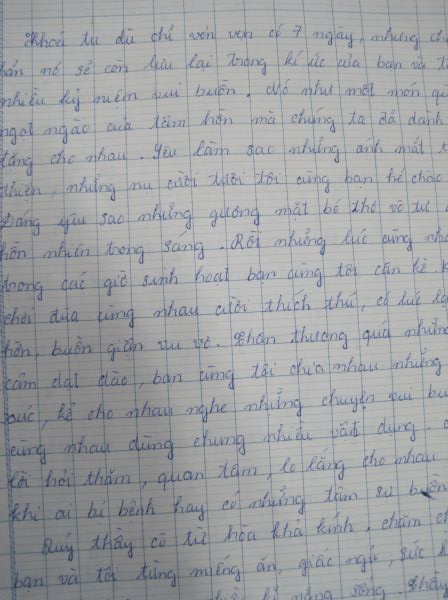 Khoá tu dù chỉ vẻn vẹn có 7 ngày, nhưng ch
hắn nó sẽ còn lưu lại trong kí ức của bạn và t
nhiều kỷ niệm vui buồn. Nó như một món qu
ngọt ngào của tâm hồn mà chúng ta đã dành
tặng cho nhau. Yêu làm sao những ánh mắt t
thiện, những nụ cười tươi tôi cùng bạn hé chào
Đáng yêu sao những gương mặt bé thơ vô tư
hồn nhiên trong sáng. Rồi những lúc cùng nha
trong các giờ sinh hoạt bạn cùng tôi cận kề. K
chơi đùa cùng nhau cười thích thú, có lúc lạ
hờn, buồn giận vu vơ. Thân thương quá những
cảm dạt dào, bạn cùng tôi chia nhau những
xúc, kể cho nhau nghe những chuyện vui bu
cùng nhau dùng chung nhiều vật dụng.
lời hỏi thăm, quan tâm, lo lắng cho nhau
khi ai bị bệnh hay có những tâm sự buồn
Quý thầy cô từ hòa khả kính, chăm ch
bạn và tôi từng miếng ăn, giấc ngủ, sức k
kỹ năng sống. Thầy